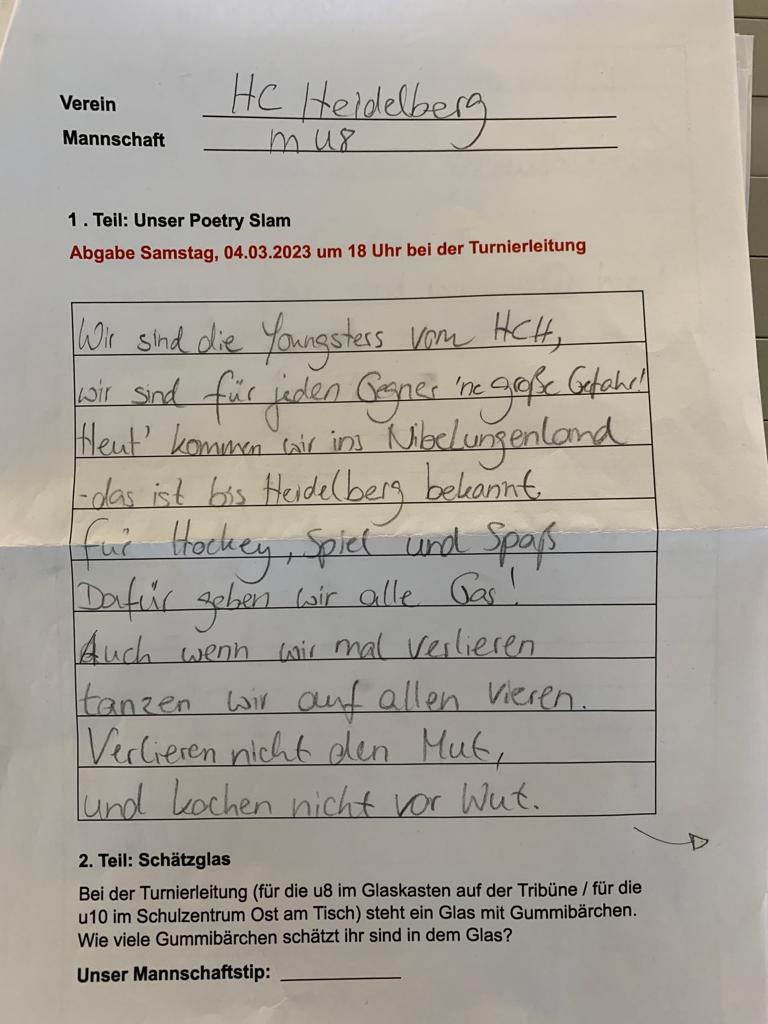 Verein HC Heidelberg
Mannschaft m u8
1 . Teil: Unser Poetry Slam
Abgabe Samstag, 04.03.2023 um 18 Uhr bei der Turnierleitung
Wir sind die Youngsters vom HCH,
wir sind für jeden Gegner 'ne große Gefahr!
Heut' kommen wir ins Nibelungenland
-das ist bis Heidelberg bekannt
für Hockey, Spiel und Spaß
Dafür geben wir alle Gas!
Auch wenn wir mal verlieren
tanzen wir auf allen vieren.
Verlieren nicht den Mut,
und kochen nicht vor Wut.
2. Teil: Schätzglas
Bei der Turnierleitung (für die u8 im Glaskasten auf der Tribüne / für die
u10 im Schulzentrum Ost am Tisch) steht ein Glas mit Gummibärchen.
Wie viele Gummibärchen schätzt ihr sind in dem Glas?
Unser Mannschaftstip: